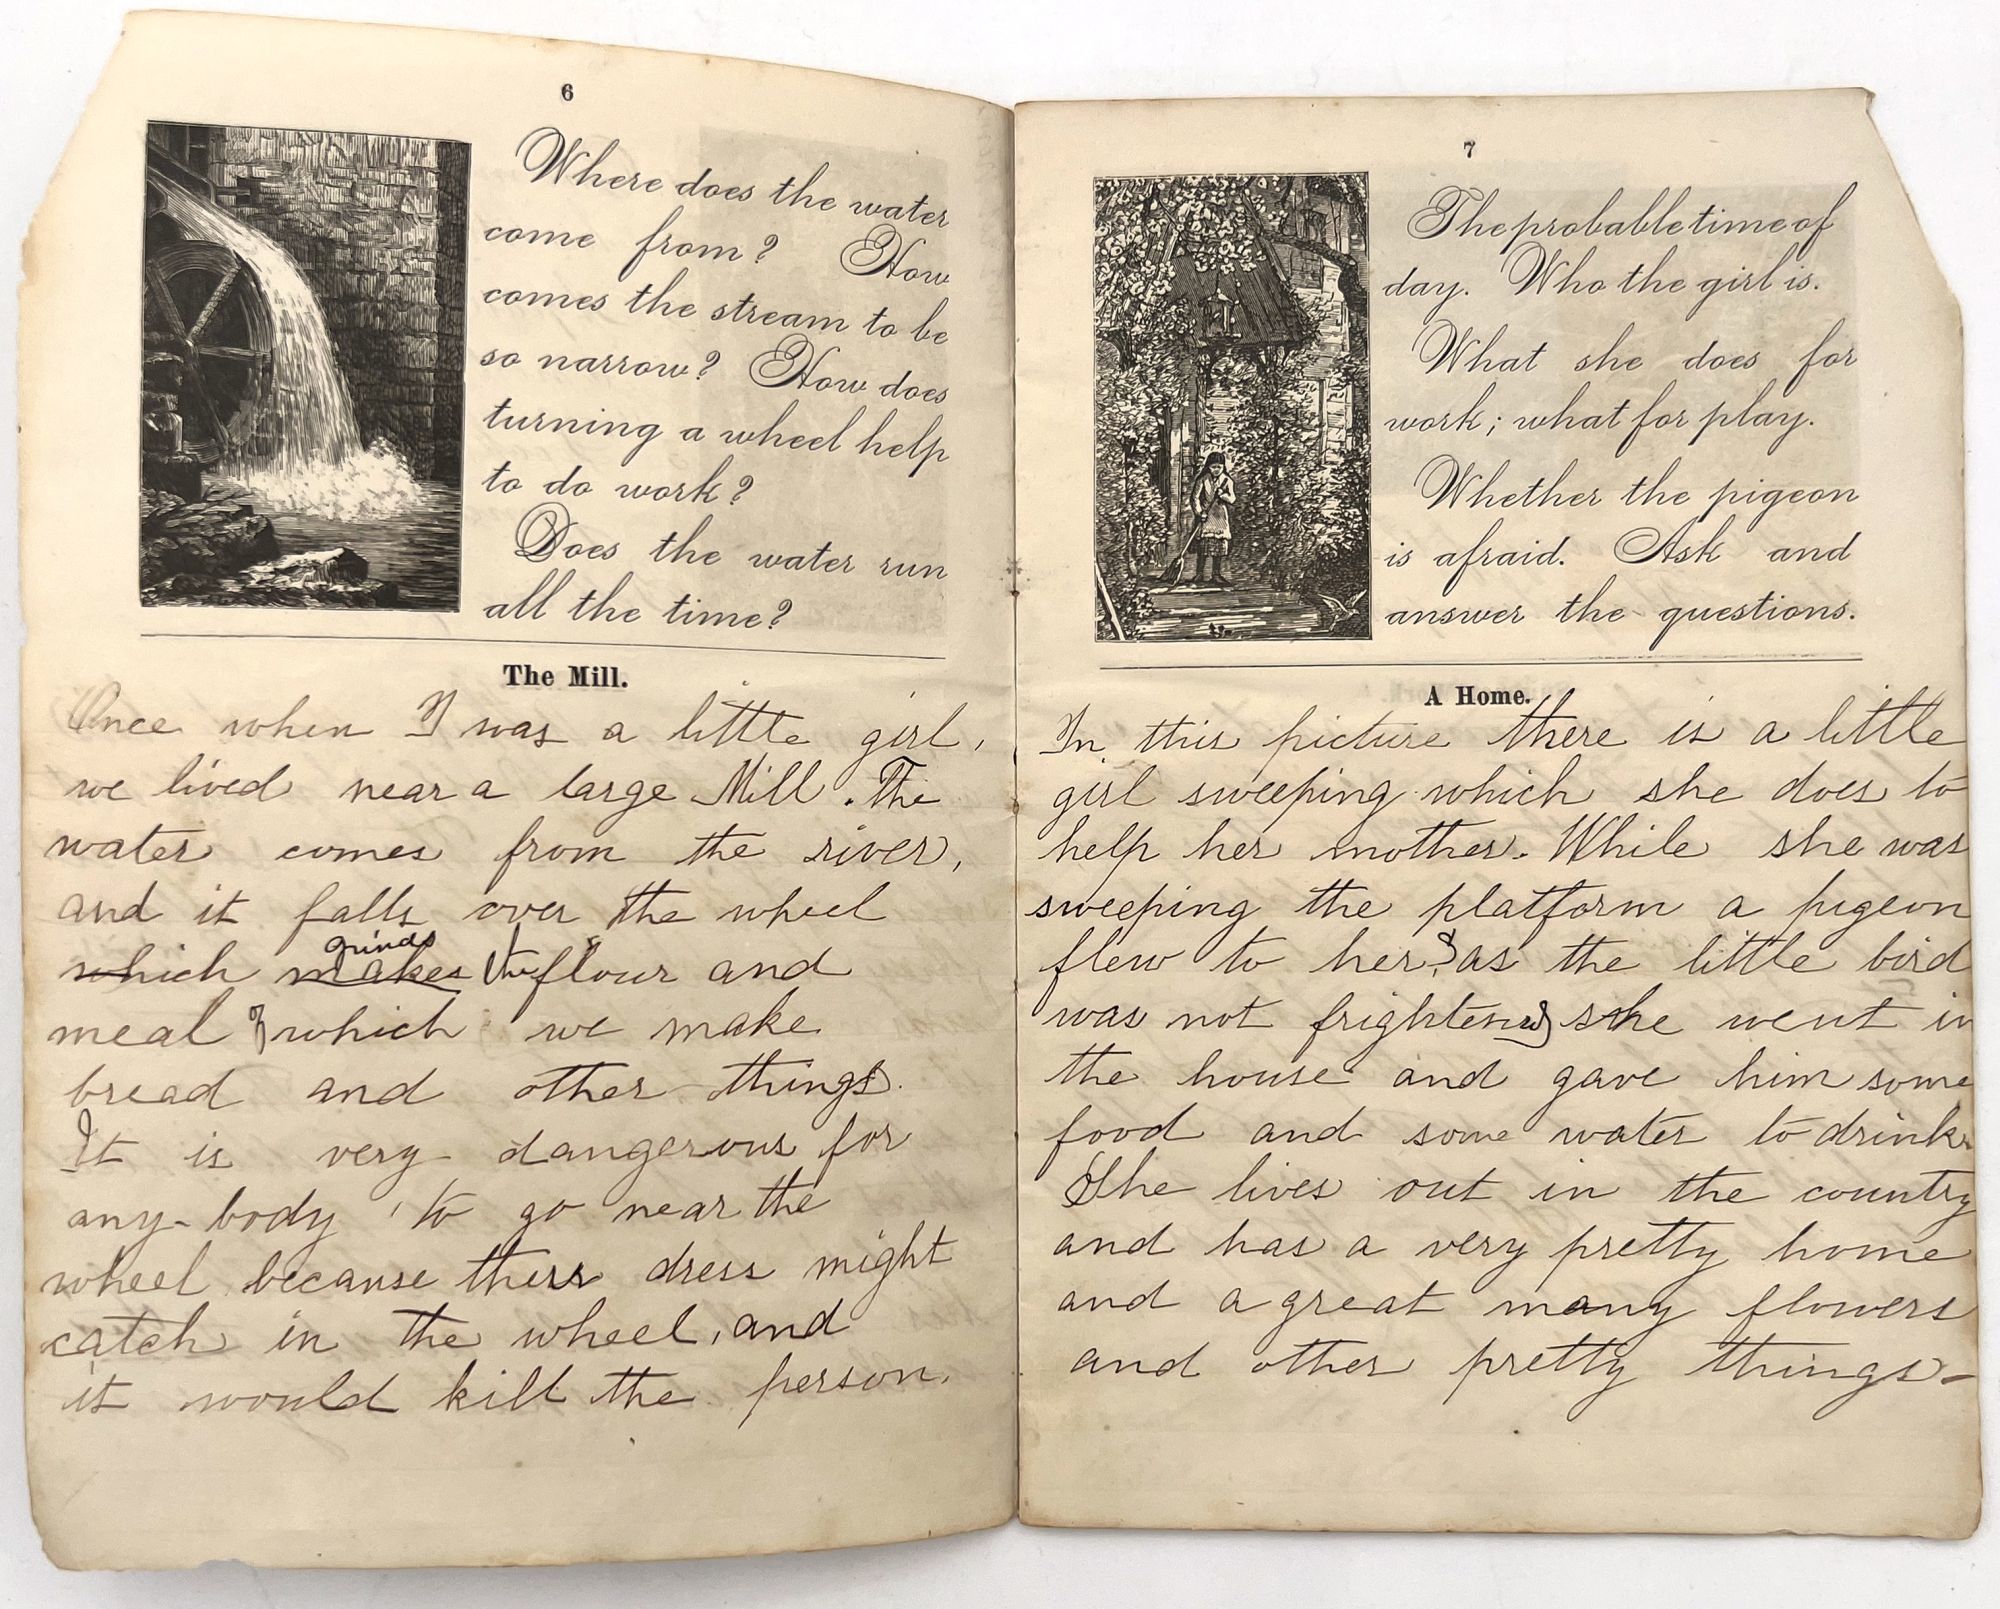 6
Where does the water
come from? How
comes the stream to be
so narrow? How does
turning a wheel help
to do work?
Does the water run
all the time?
The Mill.
Once when I was a little girl,
we lived near a large Mill. The
water comes from the river,
and it falls over the wheel
grinds
which makes the flour and
meal of which we make
bread and other things.
It is very dangerous for
any-body to go near the
wheel because their dress might
catch in the wheel, and
it would kill the person.
7
The probable time of
day. Who the girl is.
What she does for
work; what for play.
Whether the pigeon
is afraid. Ask and
answer the questions.
A Home.
In this picture there is a little
girl sweeping which she does to
help her mother. While she was
sweeping the platform a pigeon
flew to her, as the little bird
was not frightened she went in
the house and gave him some
food and some water to drink.
She lives out in the country
and has a very pretty home
and a great many flowers
and other pretty things-